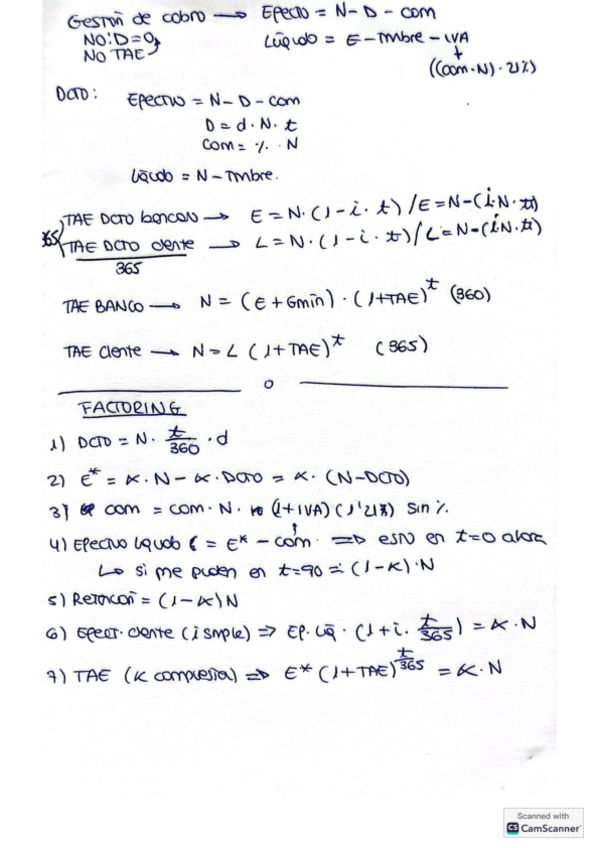 Gestión de cobro → Efecto = N - D - com
NO: D = 0
NO TAE
Líquido = E - Tmbre - IVA
↓
((com · N) · 21%)
DCTO: Efectivo = N - D - com
D = d · N · t
Com = % · N
Líquido = N - Tmbre.
TAE DCTO bancario → E = N · (1 - i · t) / E = N - (i · N · t)
365 TAE DCTO cliente → L = N · (1 - i · t) / L = N - (i · N · t)
365
TAE BANCO → N = (E + Gmin) · (1 + TAE)^t (360)
TAE Cliente → N = L (1 + TAE)^t (365)
FACTORING
1) DCTO = N · t/360 · d
2) E* = α · N - α · DCTO = α · (N - DCTO)
3) com = com · N · (1 + IVA) (1'21%) sin %.
4) Efectivo líquido = E* - com ⇒ esto en t=0 ahora
↳ si me piden en t=90 = (1 - α) · N
5) Retención = (1 - α) N
6) Efect. cliente (i simple) ⇒ Ef. Líq · (1 + i · t/365) = α · N
7) TAE (K compuesta) ⇒ E* (1 + TAE)^t/365 = α · N
Scanned with
CS CamScanner